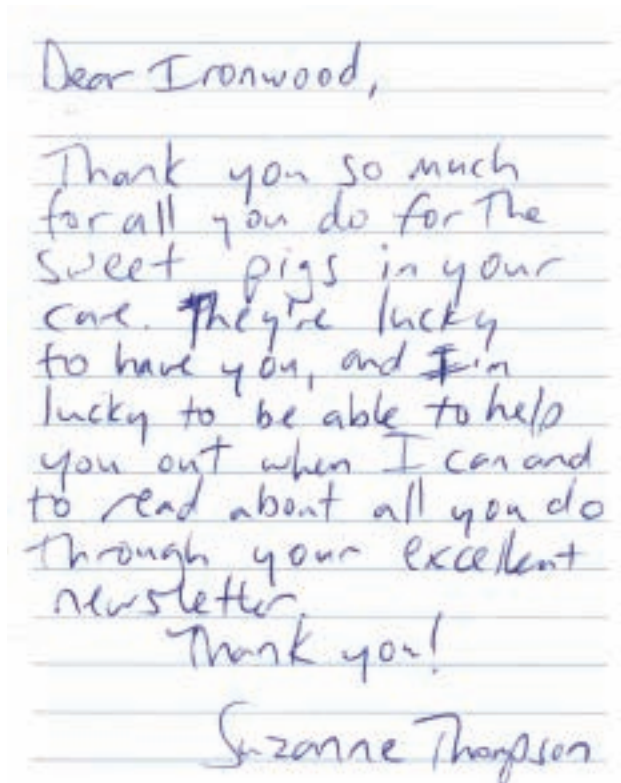 Dear Ironwood,
Thank you so much
for all you do for the
sweet pigs in your
care. They're lucky
to have you, and I'm
lucky to be able to help
you out when I can and
to read about all you do
through your excellent
newsletter.
Thank you!
Suzanne Thompson